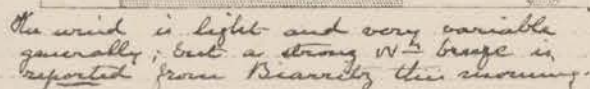 The wind is light and very variable
generally; but a strong Nn breeze is
reported from Biarritz this morning.